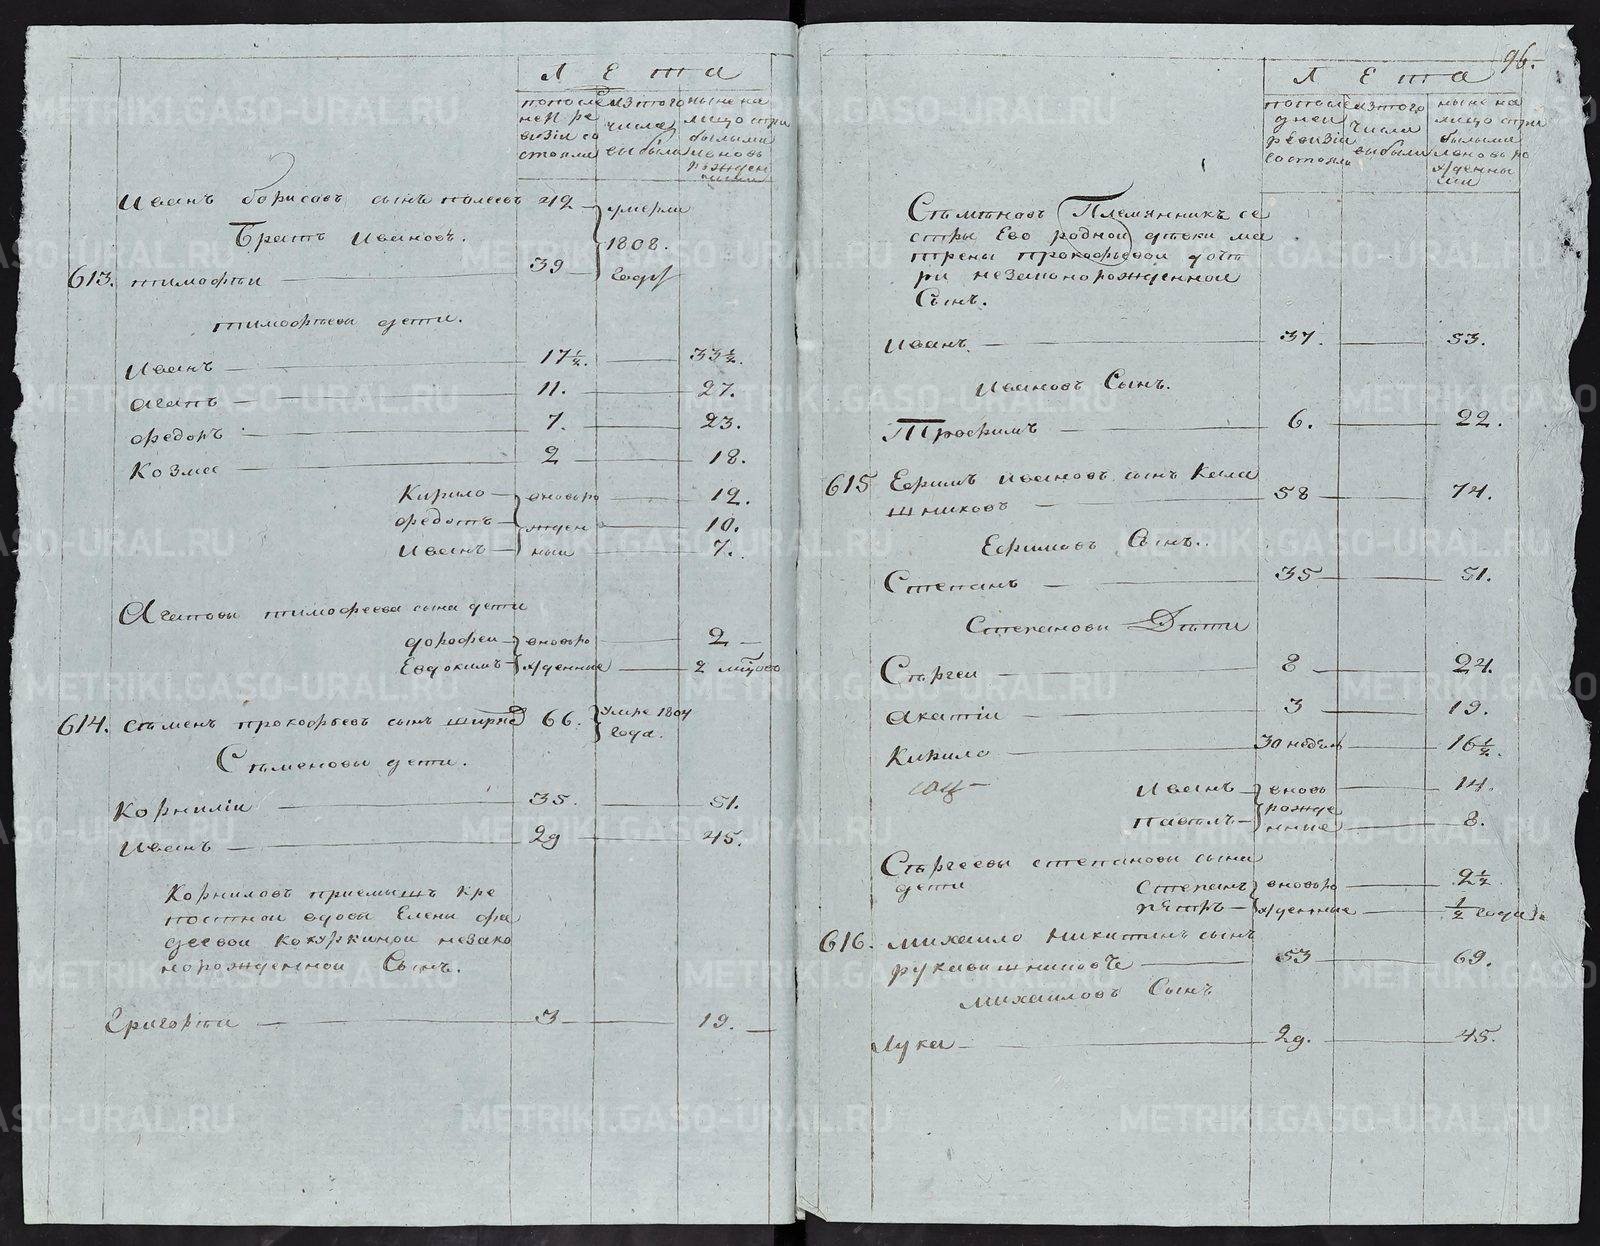 Л Е т а
попосле
ней ре
визіи со
стояли
изтого
числа
выбыли
ныне на
лицо стри
былыми
иновь
рожден
ными
Иванъ борисовъ сынъ полевъ 42 умерли
Братъ Ивановъ. 1808.
613. тимофѣи 39 году
тимофѣевы дети.
Иванъ 17½. 33½.
Агапъ 11. 27.
Федоръ 7. 23.
Козма 2 18.
Кирило вновь ро 12.
Федотъ жден 10.
Иванъ ныи 7.
Агаповы тимофеева сына дети
дорофеи вновь ро 2
Евдокимъ жденные 2 мцовъ
614. Сѣменъ прокофьевъ сынъ 66. умре 1804
года.
Сѣменовы дети.
Корниліи 35. 51.
Иванъ 29 45.
Корниловъ приемышъ кре
постной вдовы Елены фа
деевой кокуркиной незако
норожденной Сынъ.
Григорѣи 3 19.
96.
Л Е т а
попосле
дней
ревизіи
состояли
изтого
числа
выбыли
ныне на
лицо стри
былыми
иновь ро
жденны
ми
Сѣменовъ Племянникъ се
стры Ево родной девки ма
трены прокофьевой доче
ри незаконорожденной
Сынъ.
Иванъ 37. 53.
Ивановъ Сынъ.
Трофимъ 6. 22.
615 Ефимъ ивановъ сынъ Кала
шниковъ 58 74.
Ефимовъ Сынъ.
Степанъ 35 51.
Степановы Дѣти
Сѣргеи 8 24.
Акатіи 3 19.
Кирило 30 недѣль 16½.
Иванъ вновь 14.
павелъ рожде
нные 8.
Сѣргеевы степановы сына
дети Степанъ вновь ро 2½
пЕтръ жденные ½ года
616. михаило никитинъ сынъ
рукавишниковъ 53 69.
михаиловъ Сынъ
Лука 29. 45.
METRIKI.GASO-URAL.RU